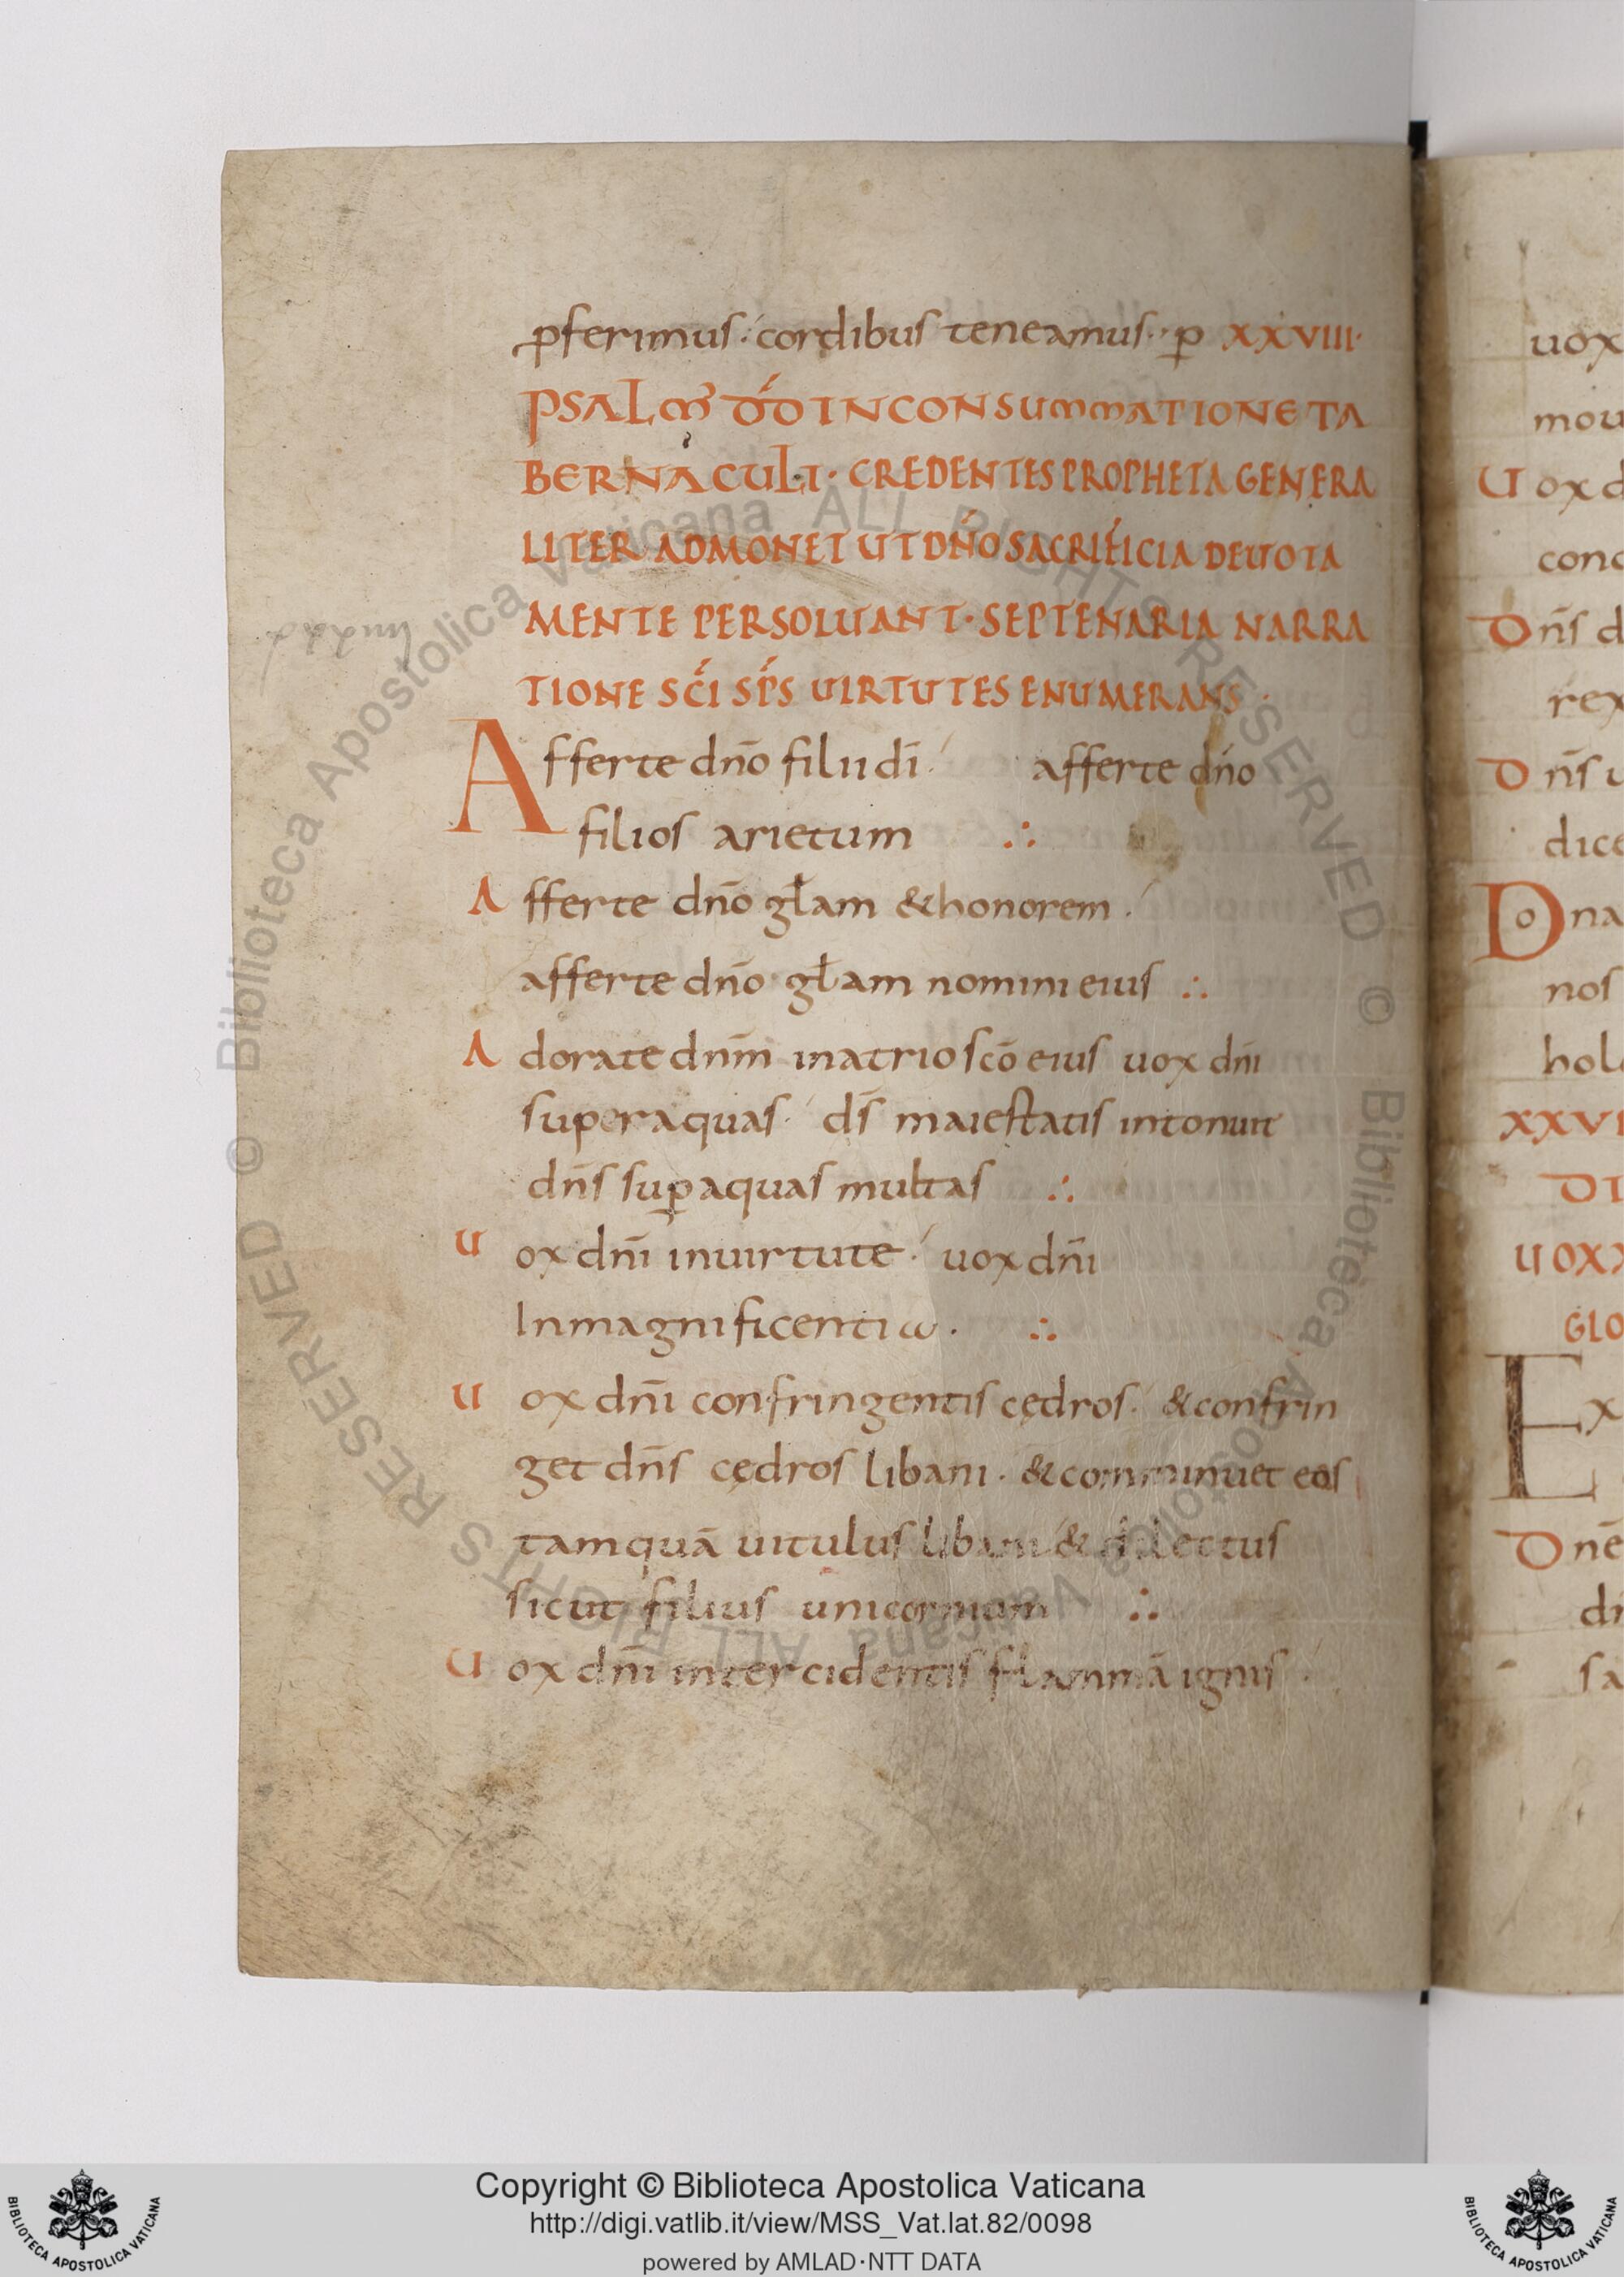 ꝓferimus· cordibus teneamus·· p̄ XXVIII·
PSALM̄ DD́ IN CONSUMMATIONE TA
BERNACULI· CREDENTES PROPHETA GENERA
LITER ADMONET UT DN̄O SACRIFICIA DEUOTA
MENTE PERSOLUANT· SEPTENARIA NARRA
TIONE SC̄I SP̄S UIRTUTES ENUMERANS·
Afferte dn̄o filii dī· afferte dn̄o
filios arietum ∴
Afferte dn̄o gl̄am & honorem·
afferte dn̄o gl̄am nomini eius ∴
Adorate dnm̄ in atrio scō eius uox dn̄i
super aquas· ds̄ maiestatis intonuit
dn̄s suꝑ aquas multas ∴
Uox dn̄i in uirtute· uox dn̄i
In magnificentia· ∴
Uox dn̄i confringentis cędros· & confrin
get dn̄s cędros libani· & comminuet eas
tamquā uitulus libani & dilectus
sicut filius unicornium ∴
Uox dn̄i intercidentis flammā ignis·
uox
mou
Uox d
conc
Dn̄s d
rex
Dn̄s u
dice
Do na
nos
holo
XXVI
DI
UOX X
GLO
Ex
Dnē
di
sa
© Biblioteca Apostolica Vaticana ALL RIGHTS RESERVED © Biblioteca Apostolica Vaticana ALL RIGHTS RESERVED
BIBLIOTECA APOSTOLICA VATICANA
Copyright © Biblioteca Apostolica Vaticana
http://digi.vatlib.it/view/MSS_Vat.lat.82/0098
powered by AMLAD·NTT DATA
BIBLIOTECA APOSTOLICA VATICANA